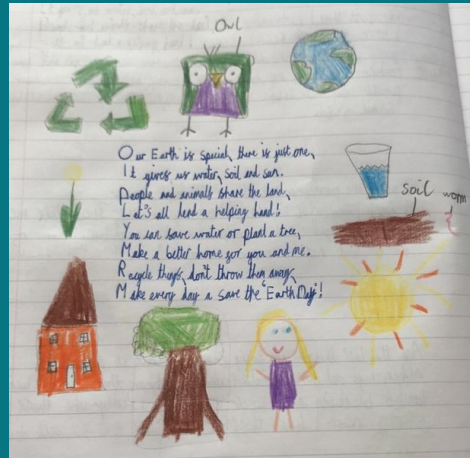 Owl
Our Earth is special, there is just one,
It gives us water, soil and sun.
People and animals share the land,
Let's all lend a helping hand!
You can save water or plant a tree,
Make a better home for you and me.
Recycle things, don't throw them away,
Make every day a save the 'Earth Day'!
soil
worm